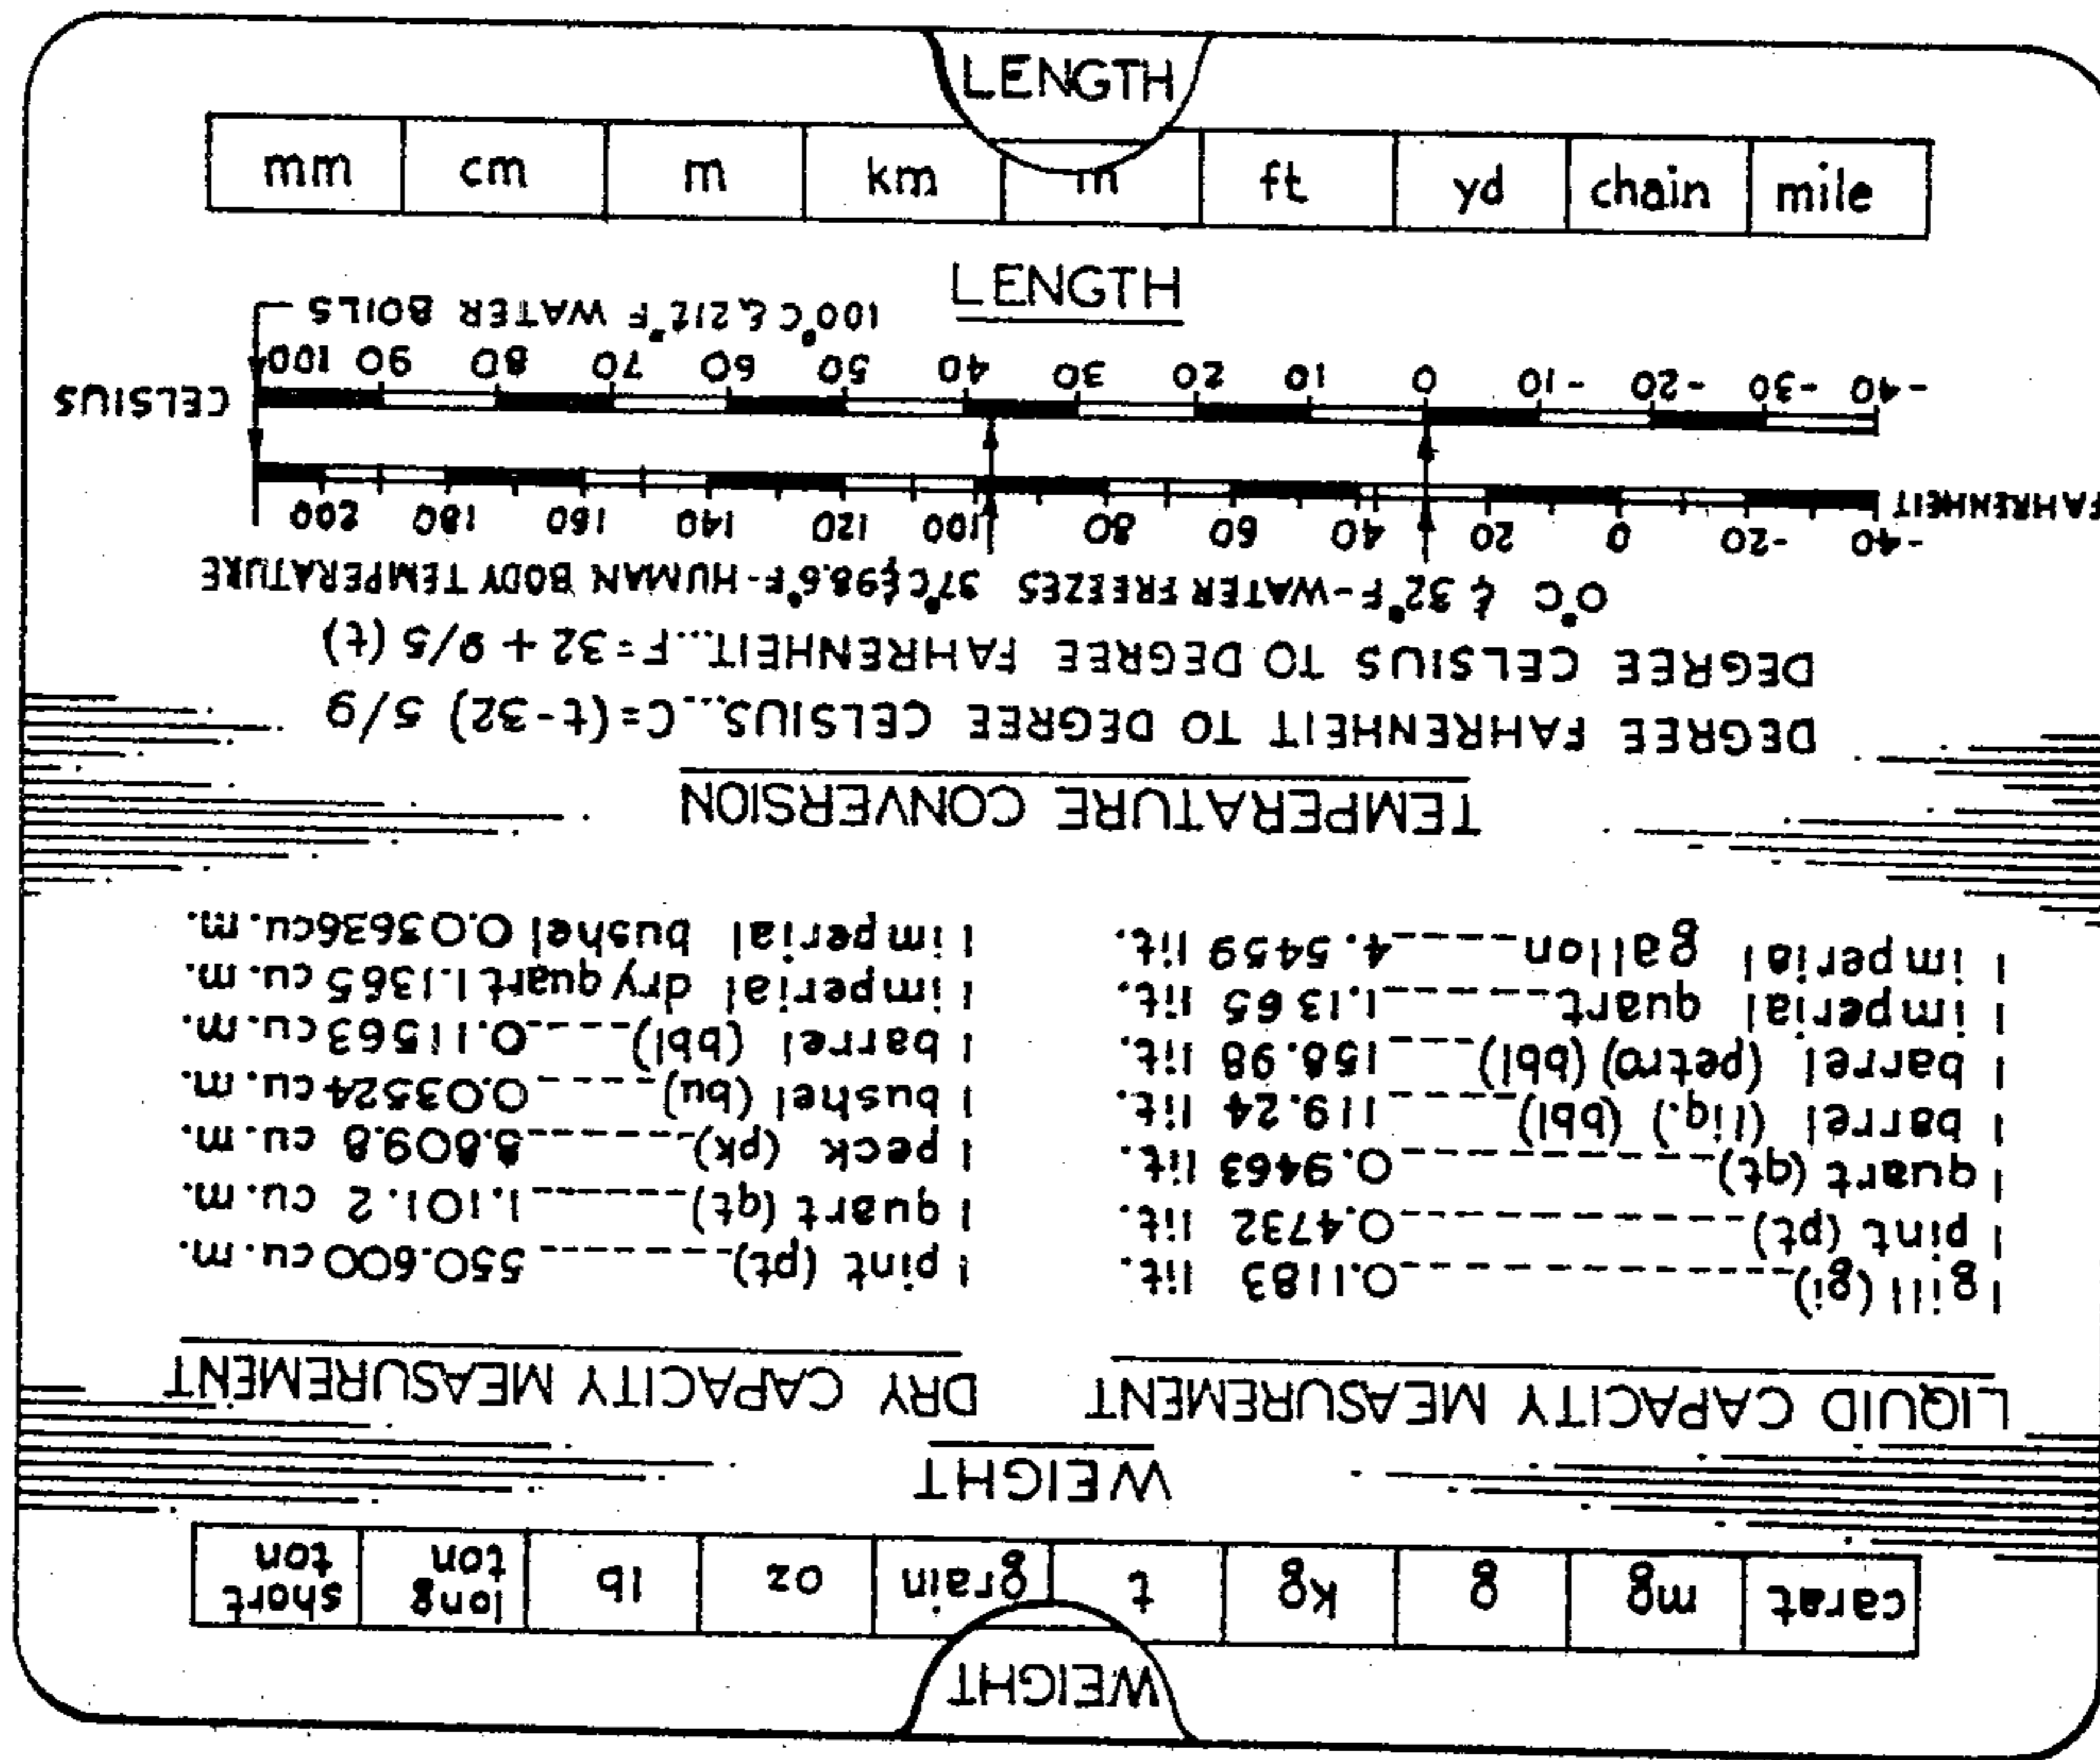 LENGTH
mm cm m km in ft yd chain mile
LENGTH
WEIGHT
carat mg g Kg t grain oz lb long ton short ton
WEIGHT
LIQUID CAPACITY MEASUREMENT
1 gill (gi)-------------0.1183 lit.
1 pint (pt)-----------0.4732 lit.
1 quart (qt)-----------0.9463 lit.
1 barrel (liq.) (bbl)-----119.24 lit.
1 barrel (petro) (bbl)---158.98 lit.
1 imperial quart------1.1365 lit.
1 imperial gallon-----4.5459 lit.
DRY CAPACITY MEASUREMENT
1 pint (pt)-------550.600 cu.m.
1 quart (qt)------1.101.2 cu.m.
1 peck (pk)------8.809.8 cu.m.
1 bushel (bu)-----0.03524 cu.m.
1 barrel (bbl)----0.11563 cu.m.
1 imperial dry quart 1.1365 cu.m.
1 imperial bushel 0.03636cu.m.
TEMPERATURE CONVERSION
DEGREE FAHRENHEIT TO DEGREE CELSIUS...C=(t-32) 5/9
DEGREE CELSIUS TO DEGREE FAHRENHEIT...F=32 + 9/5 (t)
0°C & 32°F-WATER FREEZES 37°C&98.6°F-HUMAN BODY TEMPERATURE
-40 -20 0 20 40 60 80 100 120 140 160 180 200
FAHRENHEIT
CELSIUS
-40 -30 -20 -10 0 10 20 30 40 50 60 70 80 90 100
100°C & 212°F WATER BOILS